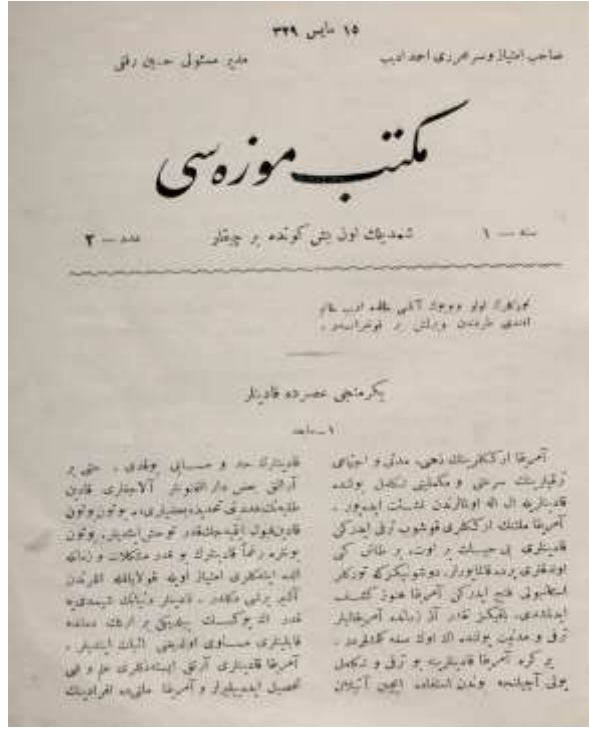 ١٥ مايس ٣٢٩
صاحب امتياز و سر محررى احمد اديب
مدير مسئولى حسين رفقى
مكتب موزه سى
سنه — ١
شمديلك اون بش كونده بر چيقار
عدد — ٢
يكرمنجى عصرده قادينلر
١ـ مابعد
آمريقا ارككلرينك ذهنى، مدنى و اجتماعى
ترقيلرينك سرعتى و مكمليتى تكامل يولنده
قادينلرينه ال اله اونلردن نشئت ايديور .
آمريقا ملتنك ارككلرى قوشوب ترقى ايدركن
قادينلرى بى حسيات بر اوت، بر طاش كبى
اولدقلرى يرده قالمايورلر. دوشونيكزكه توركلر
استانبولى فتح ايدركن آمريقا هنوز كشف
ايدلمشدى، باقيكز نقدر آز زمانده آمريقاليلر
ترقى و مدنيت يولنده اك اوك صفه كلمشلردر .
بو كره آمريقا قادينلرينه بو ترقى و تكامل
يولى آچيلنجه بوندن استفاده ايچين آتيلان
قادينلرك حد و حسابى يوقدى . حتى بر
آرالق بعض دار الفنونلر آلاجقلرى قادين
طلبه نك عددينى تحديد
بوتون
بونلره رغماً قادينلرك بو قدر مشكلات و زمانله
الده ايتدكلرى امتياز اويله قولايلقله اللرندن
آلنير برشى دكلدر . قادينلر دنيانك شيمدى يه
قدر اك يوكسك
قابليتلرى مساوى اولديغنى اثبات ايتديلر .
آمريقا قادينلرى آرتق ايسته دكلرى علم و فنى
تحصيل ايده بيليرلر و آمريقا ملتى ده افرادينك